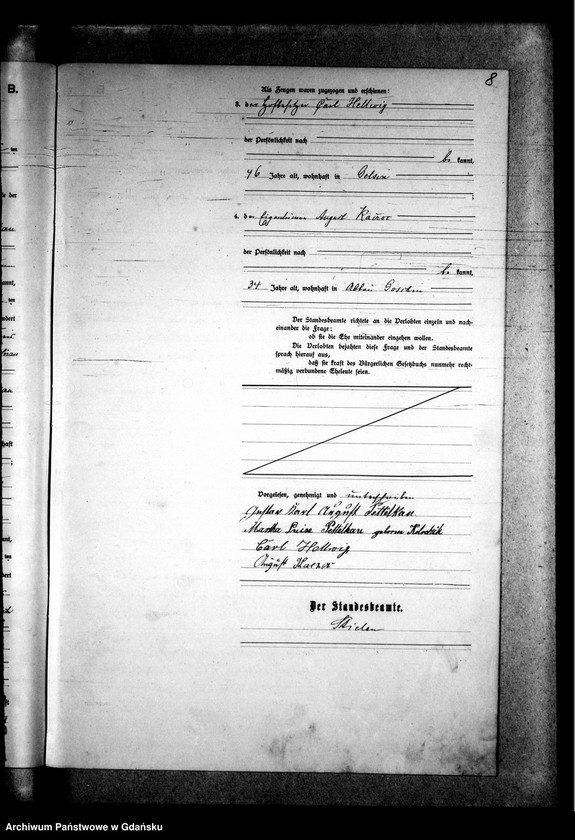 8
B.
Als Zeugen waren zugezogen und erschienen:
3. der Hofbesitzer Carl Hellwig
der Persönlichkeit nach
be kannt,
46 Jahre alt, wohnhaft in Gelsen
;
4. der Eigentümer August
der Persönlichkeit nach
be kannt,
34 Jahre alt, wohnhaft in Abbau
Der Standesbeamte richtete an die Verlobten einzeln und nach-
einander die Frage:
ob sie die Ehe miteinander eingehen wollen.
Die Verlobten bejahten diese Frage und der Standesbeamte
sprach hierauf aus,
daß sie kraft des Bürgerlichen Gesetzbuchs nunmehr recht-
mäßig verbundene Eheleute seien.
Vorgelesen, genehmigt und unterschrieben
Gustav Karl August Pettelkau
Martha Luise Pettelkau geborne
Carl Hellwig
August
Der Standesbeamte.
Archiwum Państwowe w Gdańsku